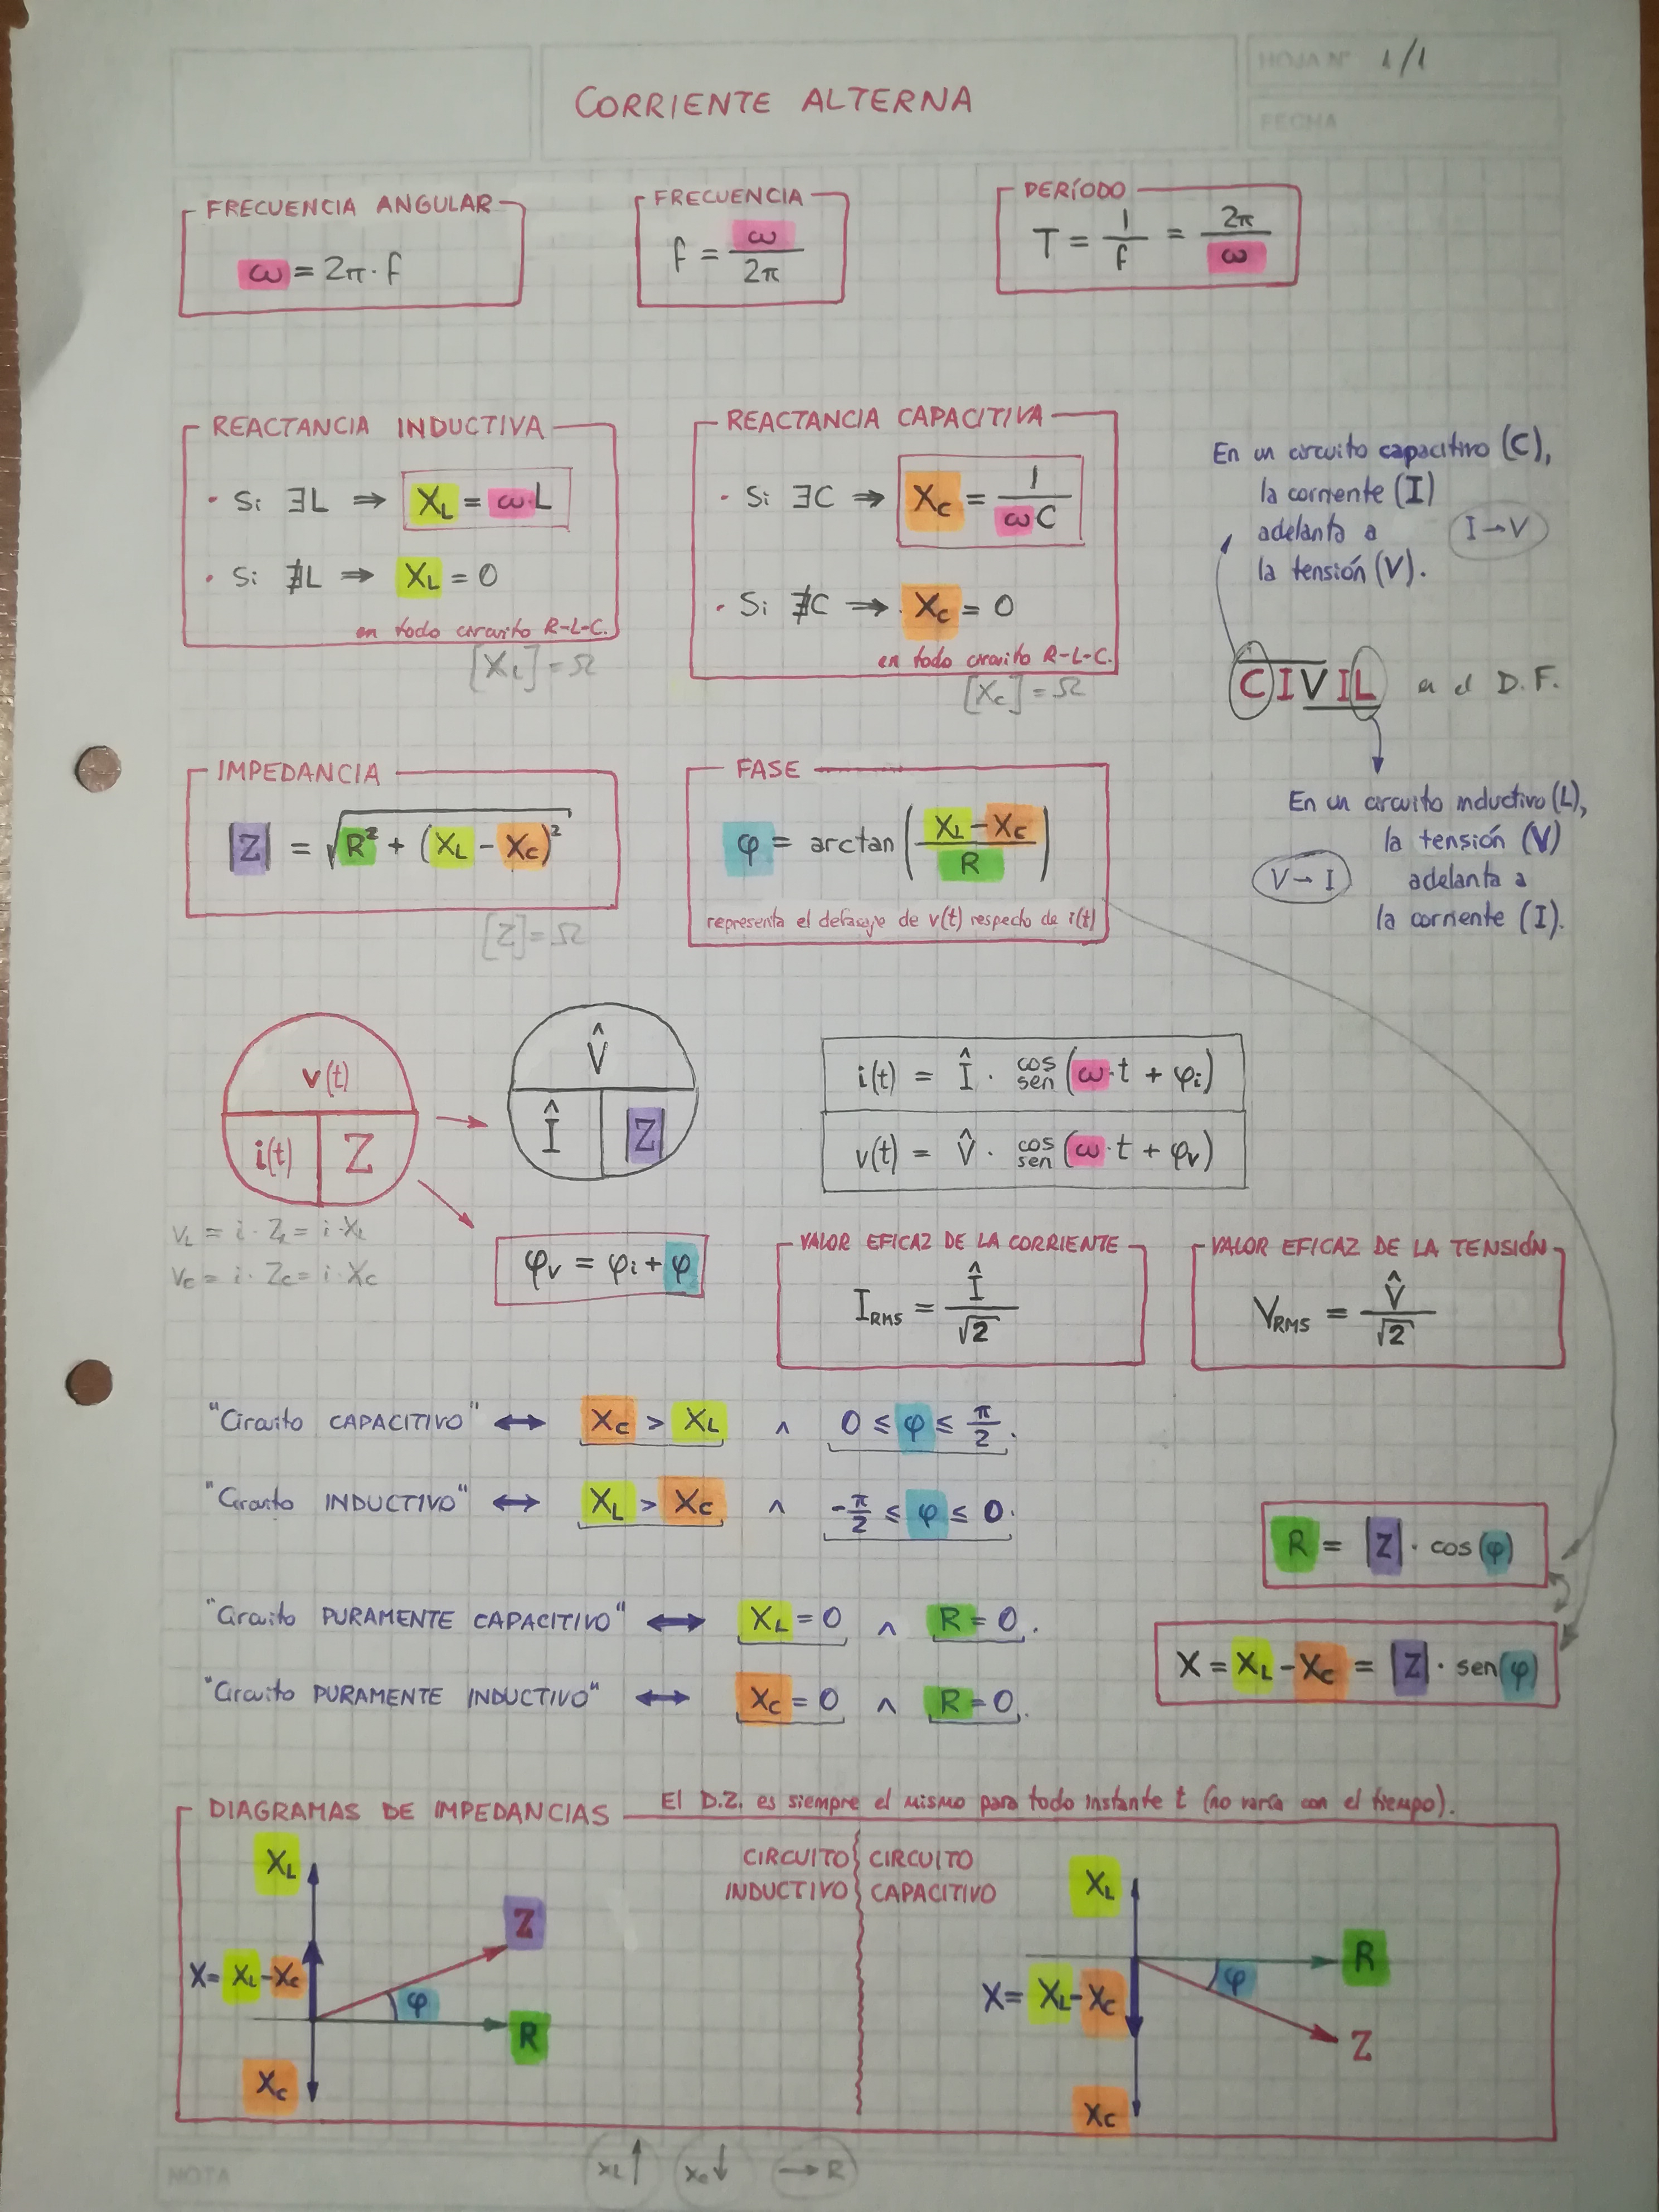 HOJA Nº 1/1
CORRIENTE ALTERNA
FECHA
FRECUENCIA ANGULAR
ω = 2π · f
FRECUENCIA
f = ω / 2π
PERÍODO
T = 1/f = 2π/ω
REACTANCIA INDUCTIVA
• Si ∃L ⇒ X_L = ω·L
• Si ∄L ⇒ X_L = 0
en todo circuito R-L-C.
[X_L] = Ω
REACTANCIA CAPACITIVA
• Si ∃C ⇒ X_C = 1/ωC
• Si ∄C ⇒ X_C = 0
en todo circuito R-L-C.
[X_C] = Ω
En un circuito capacitivo (C),
la corriente (I)
adelanta a
la tensión (V).
I → V
CIVIL en el D.F.
En un circuito inductivo (L),
la tensión (V)
adelanta a
la corriente (I).
V → I
IMPEDANCIA
|Z| = √(R² + (X_L - X_C)²)
[Z] = Ω
FASE
φ = arctan((X_L - X_C)/R)
representa el defasaje de v(t) respecto de i(t)
v(t)
i(t) Z
V̂
Î |Z|
i(t) = Î · cos sen (ω·t + φi)
v(t) = V̂ · cos sen (ω·t + φv)
V_L = i · Z_L = i · X_L
V_C = i · Z_C = i · X_C
φv = φi + φ
VALOR EFICAZ DE LA CORRIENTE
I_RMS = Î/√2
VALOR EFICAZ DE LA TENSIÓN
V_RMS = V̂/√2
"Circuito CAPACITIVO" ↔ X_C > X_L ∧ 0 ≤ φ ≤ π/2.
"Circuito INDUCTIVO" ↔ X_L > X_C ∧ -π/2 ≤ φ ≤ 0.
"Circuito PURAMENTE CAPACITIVO" ↔ X_L = 0 ∧ R = 0.
"Circuito PURAMENTE INDUCTIVO" ↔ X_C = 0 ∧ R = 0.
R = |Z| · cos(φ)
X = X_L - X_C = |Z| · sen(φ)
DIAGRAMAS DE IMPEDANCIAS
El D.Z. es siempre el mismo para todo instante t (no varía con el tiempo).
CIRCUITO INDUCTIVO
X_L
Z
X = X_L - X_C
φ
R
X_C
CIRCUITO CAPACITIVO
X_L
R
φ
X = X_L - X_C
Z
X_C
NOTA
X_L ↑
X_C ↓
→ R